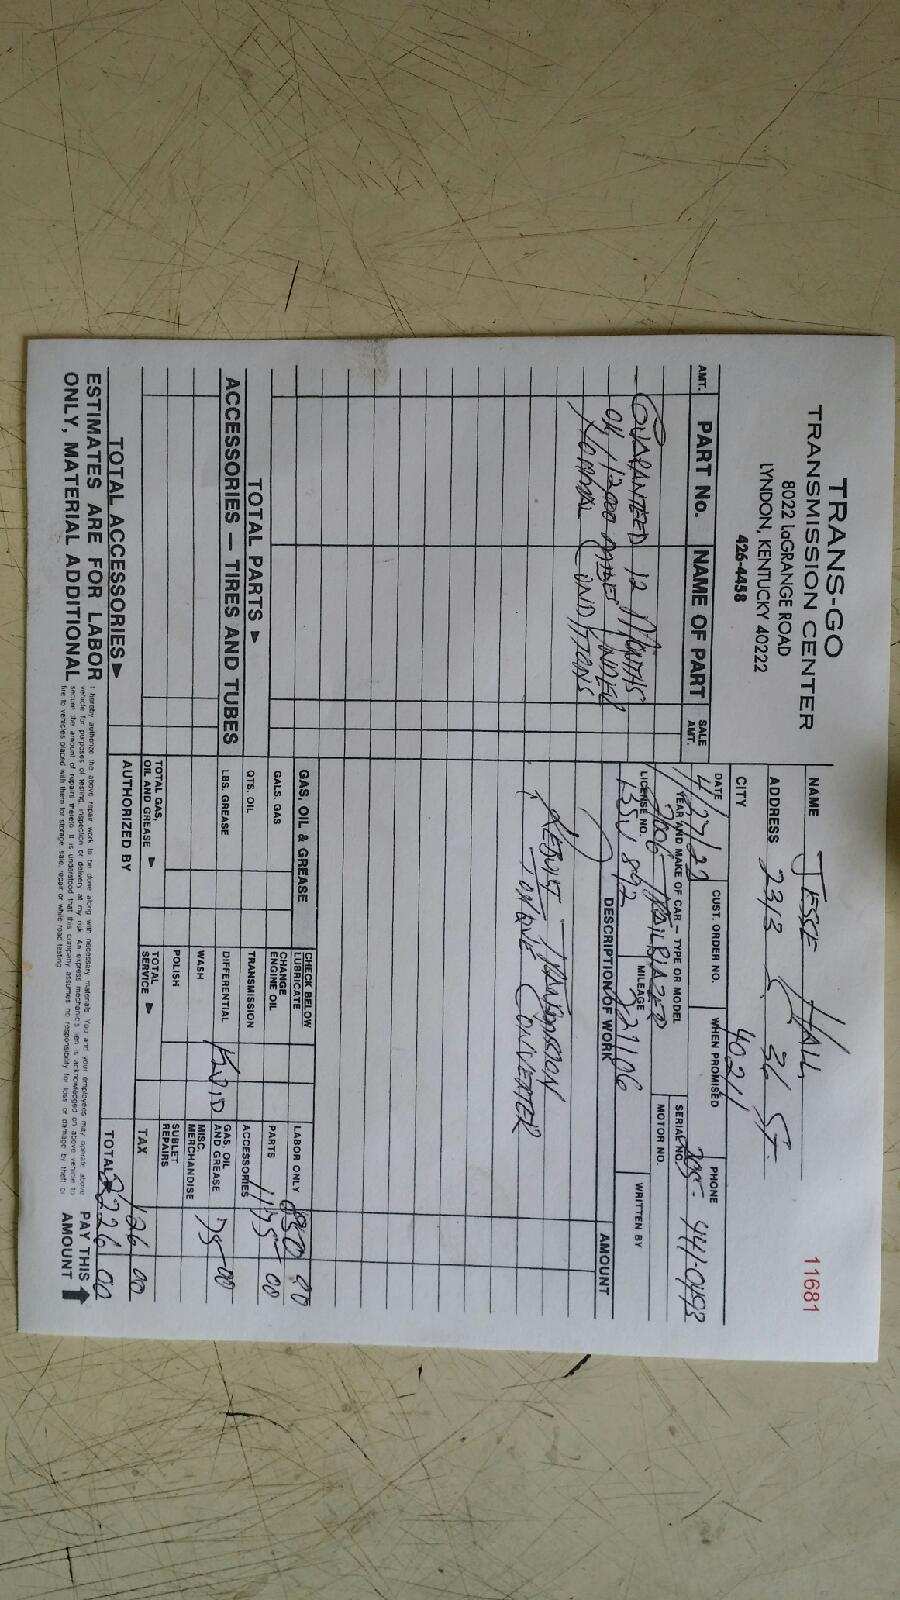 TRANS-GO
TRANSMISSION CENTER
8022 LaGRANGE ROAD
LYNDON, KENTUCKY 40222
426-4458
11681
NAME JESSE HALL
ADDRESS 2313 S. 36 ST.
CITY 40211
PHONE 205- 441-0493
DATE 4/27/22
CUST. ORDER NO.
WHEN PROMISED
YEAR AND MAKE OF CAR - TYPE OR MODEL 2006 TRAILBLAZER
SERIAL NO.
MOTOR NO.
LICENSE NO. 892
MILEAGE 221106
WRITTEN BY
AMT. PART No. NAME OF PART SALE AMT.
DESCRIPTION OF WORK AMOUNT
GUARANTEED 12 MONTHS
OR 12000 MILES UNDER
NORMAL CONDITIONS
REBUILT TRANSMISSION
TORQUE CONVERTER
TOTAL PARTS ►
ACCESSORIES — TIRES AND TUBES
TOTAL ACCESSORIES ►
GAS, OIL & GREASE
GALS. GAS
QTS. OIL
LBS. GREASE
TOTAL GAS, OIL AND GREASE ►
CHECK BELOW
LUBRICATE
CHANGE ENGINE OIL
TRANSMISSION
DIFFERENTIAL
WASH
POLISH
TOTAL SERVICE ►
LABOR ONLY 850 00
PARTS 1175 00
ACCESSORIES
GAS, OIL AND GREASE 75 00
MISC. MERCHANDISE
SUBLET REPAIRS
TAX 126 00
TOTAL 2226 00
AUTHORIZED BY
ESTIMATES ARE FOR LABOR
ONLY, MATERIAL ADDITIONAL
I hereby authorize the above repair work to be done along with necessary materials. You and your employees may operate above
vehicle for purposes of testing, inspection or delivery at my risk. An express mechanic's lien is acknowledged on above vehicle to
secure the amount of repairs thereto. It is understood that this company assumes no responsibility for loss or damage by theft or
fire to vehicles placed with them for storage, sale, repair or while road testing.
PAY THIS
AMOUNT